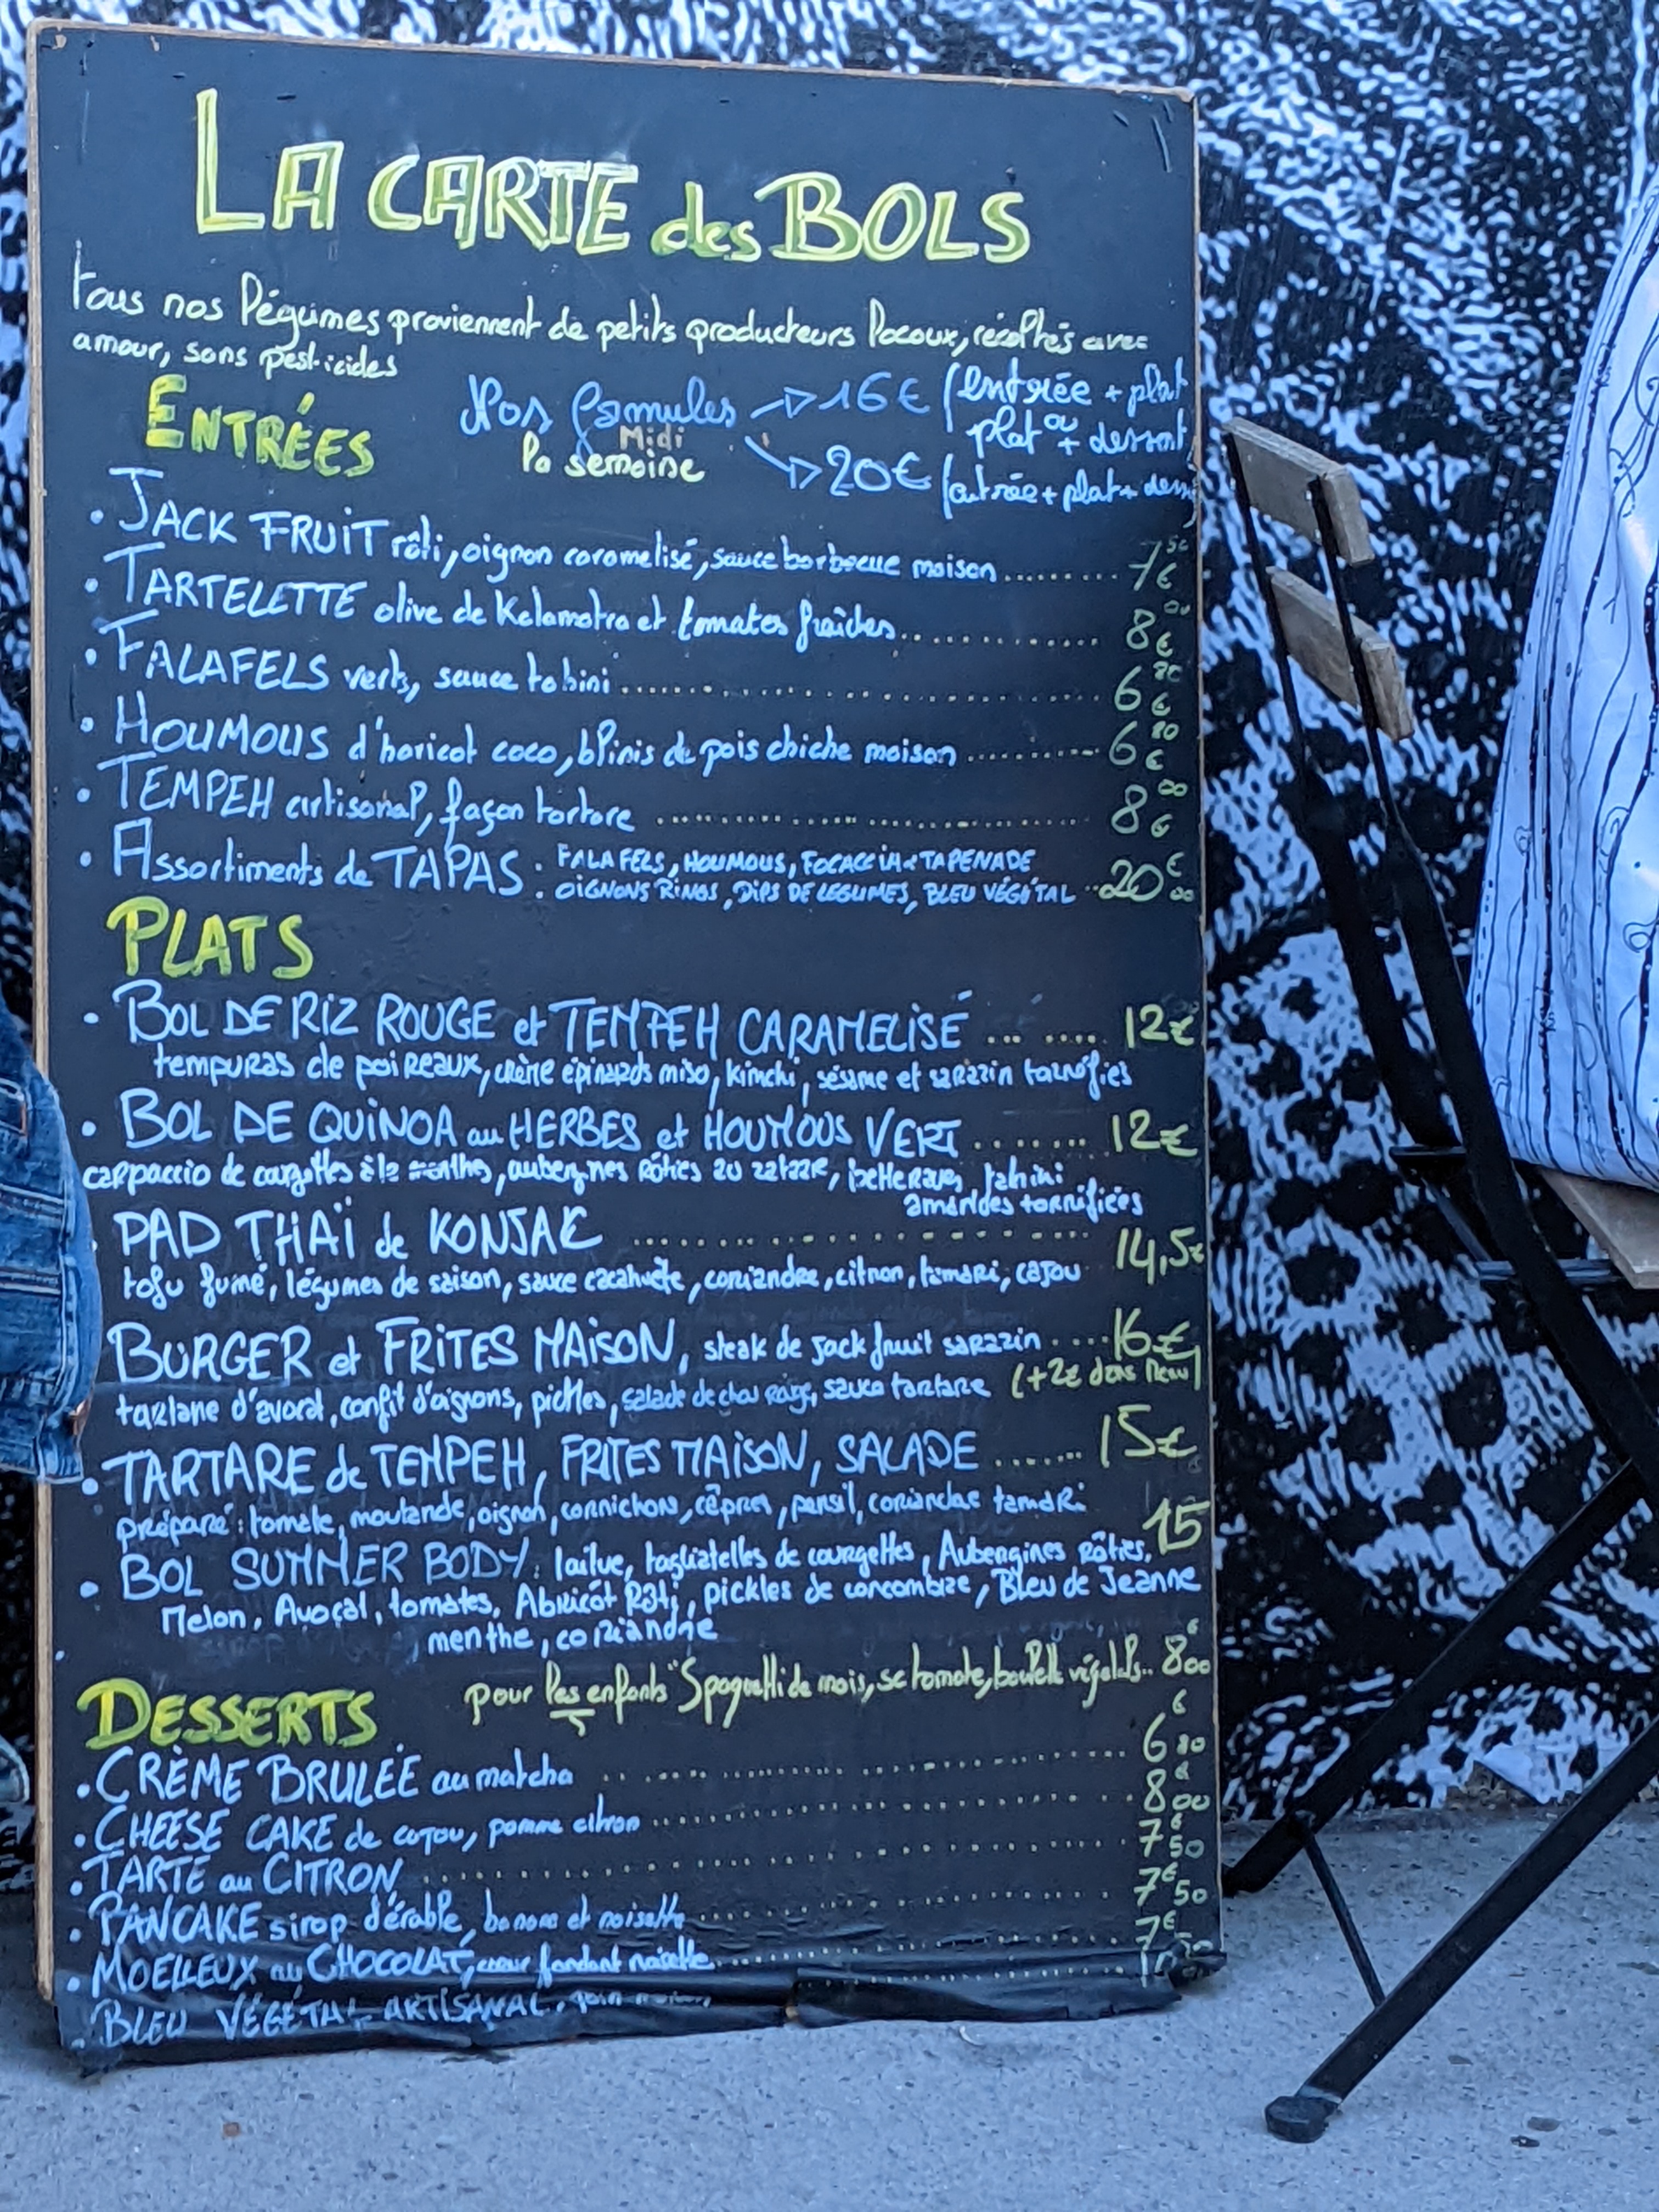 LA CARTE des BOLS
tous nos légumes proviennent de petits producteurs locaux, récoltés avec
amour, sans pesticides
ENTRÉES
Nos formules → 16€ (entrée + plat
Midi
ou
plat + dessert
la semaine → 20€ (entrée + plat + dess
• JACK FRUIT rôti, oignon caramelisé, sauce barbecue maison .......... 7€50
• TARTELETTE olive de Kalamatra et tomates fraîches .......... 8€00
• FALAFELS verts, sauce tahini .......... 6€80
• HOUMOUS d'haricot coco, blinis de pois chiche maison .......... 6€80
• TEMPEH artisanal, façon tartare .......... 8€00
• Assortiments de TAPAS : FALAFELS, HOUMOUS, FOCACCIA & TAPENADE
OIGNONS RINGS, DIPS DE LEGUMES, BLEU VÉGÉTAL .. 20€00
PLATS
• BOL DE RIZ ROUGE et TEMPEH CARAMELISÉ ... .... 12€
tempuras de poireaux, crème épinards miso, kimchi, sésame et sarazin torréfiés
• BOL DE QUINOA au HERBES et HOUMOUS VERT ........ 12€
carpaccio de courgettes à la menthe, aubergines rôties au zataar, betteraves, tahini
amandes torrifiées
PAD THAÏ de KONJAC .......... 14,5€
tofu fumé, légumes de saison, sauce cacahuète, coriandre, citron, tamari, cajou
BURGER et FRITES MAISON, steak de jack fruit sarazin .... 16€
tartare d'avocat, confit d'oignons, pickles, salade de chou rouge, sauce tartare (+2€ dans menu)
• TARTARE de TEMPEH, FRITES MAISON, SALADE ....... 15€
préparé : tomate, moutarde, oignon, cornichons, câpres, persil, coriandre tamari
• BOL SUMMER BODY : laitue, tagliatelles de courgettes, Aubergines rôties, 15
Melon, Avocat, tomates, Abricot Rôti, pickles de concombre, Bleu de Jeanne
menthe, coriandre
pour les enfants "Spaguetti de mais, sc tomate, boulette végétale.. 8€00
DESSERTS
• CRÈME BRULÉE au matcha .......... 6€80
• CHEESE CAKE de cajou, pomme citron .......... 8€00
• TARTE au CITRON .......... 7€50
• PANCAKE sirop d'érable, banane et noisette .......... 7€50
• MOELLEUX au CHOCOLAT, cœur fondant noisette .......... 7€
• BLEU VÉGÉTAL ARTISANAL,